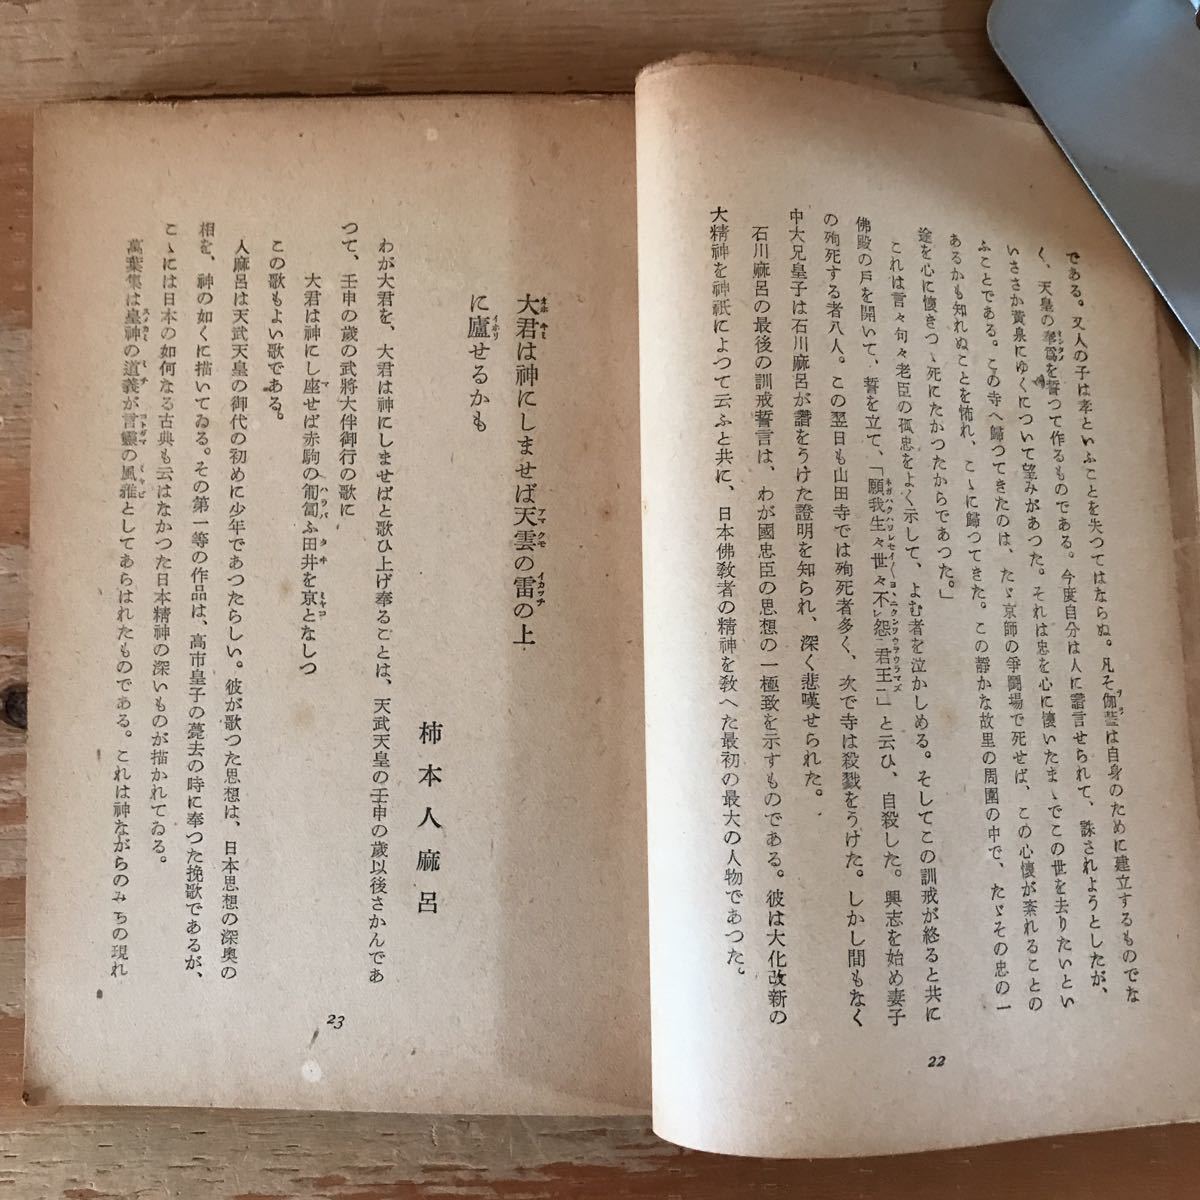 である。又人の子は孝といふことを失つてはならぬ。凡そ伽藍は自身のために建立するものでな
く、天皇の奉爲を誓つて作るものである。今度自分は人に讒言せられて、誅されようとしたが、
いささか黄泉にゆくについて望みがあつた。それは忠を心に懷いたまゝでこの世を去りたいとい
ふことである。この寺へ歸つてきたのは、たゞ京師の爭鬪場で死せば、この心懷が紊れることの
あるかも知れぬことを怖れ、こゝに歸つてきた。この靜かな故里の周圍の中で、たゞその忠の一
途を心に懷きつゝ死にたかつたからであつた。」
これは言々句々老臣の孤忠をよく示して、よむ者を泣かしめる。そしてこの訓戒が終ると共に
佛殿の戸を開いて、誓を立て、「願我生々世々不レ怨二君王一」と云ひ、自殺した。興志を始め妻子
の殉死する者八人。この翌日も山田寺では殉死者多く、次で寺は殺戮をうけた。しかし間もなく
中大兄皇子は石川麻呂が讒をうけた證明を知られ、深く悲嘆せられた。
石川麻呂の最後の訓戒誓言は、わが國忠臣の思想の一極致を示すものである。彼は大化改新の
大精神を神祇によつて云ふと共に、日本佛教者の精神を敎へた最初の最大の人物であつた。
22
大君は神にしませば天雲の雷の上
に廬せるかも
柿本人麻呂
わが大君を、大君は神にしませばと歌ひ上げ奉ることは、天武天皇の壬申の歳以後さかんであ
つて、壬申の歳の武將大伴御行の歌に
大君は神にし座せば赤駒の匍匐ふ田井を京となしつ
この歌もよい歌である。
人麻呂は天武天皇の御代の初めに少年であつたらしい。彼が歌つた思想は、日本思想の深奥の
相を、神の如くに描いてゐる。その第一等の作品は、高市皇子の薨去の時に奉つた挽歌であるが、
こゝには日本の如何なる古典も云はなかつた日本精神の深いものが描かれてゐる。
萬葉集は皇神の道義が言靈の風雅としてあらはれたものである。これは神ながらのみちの現れ
23